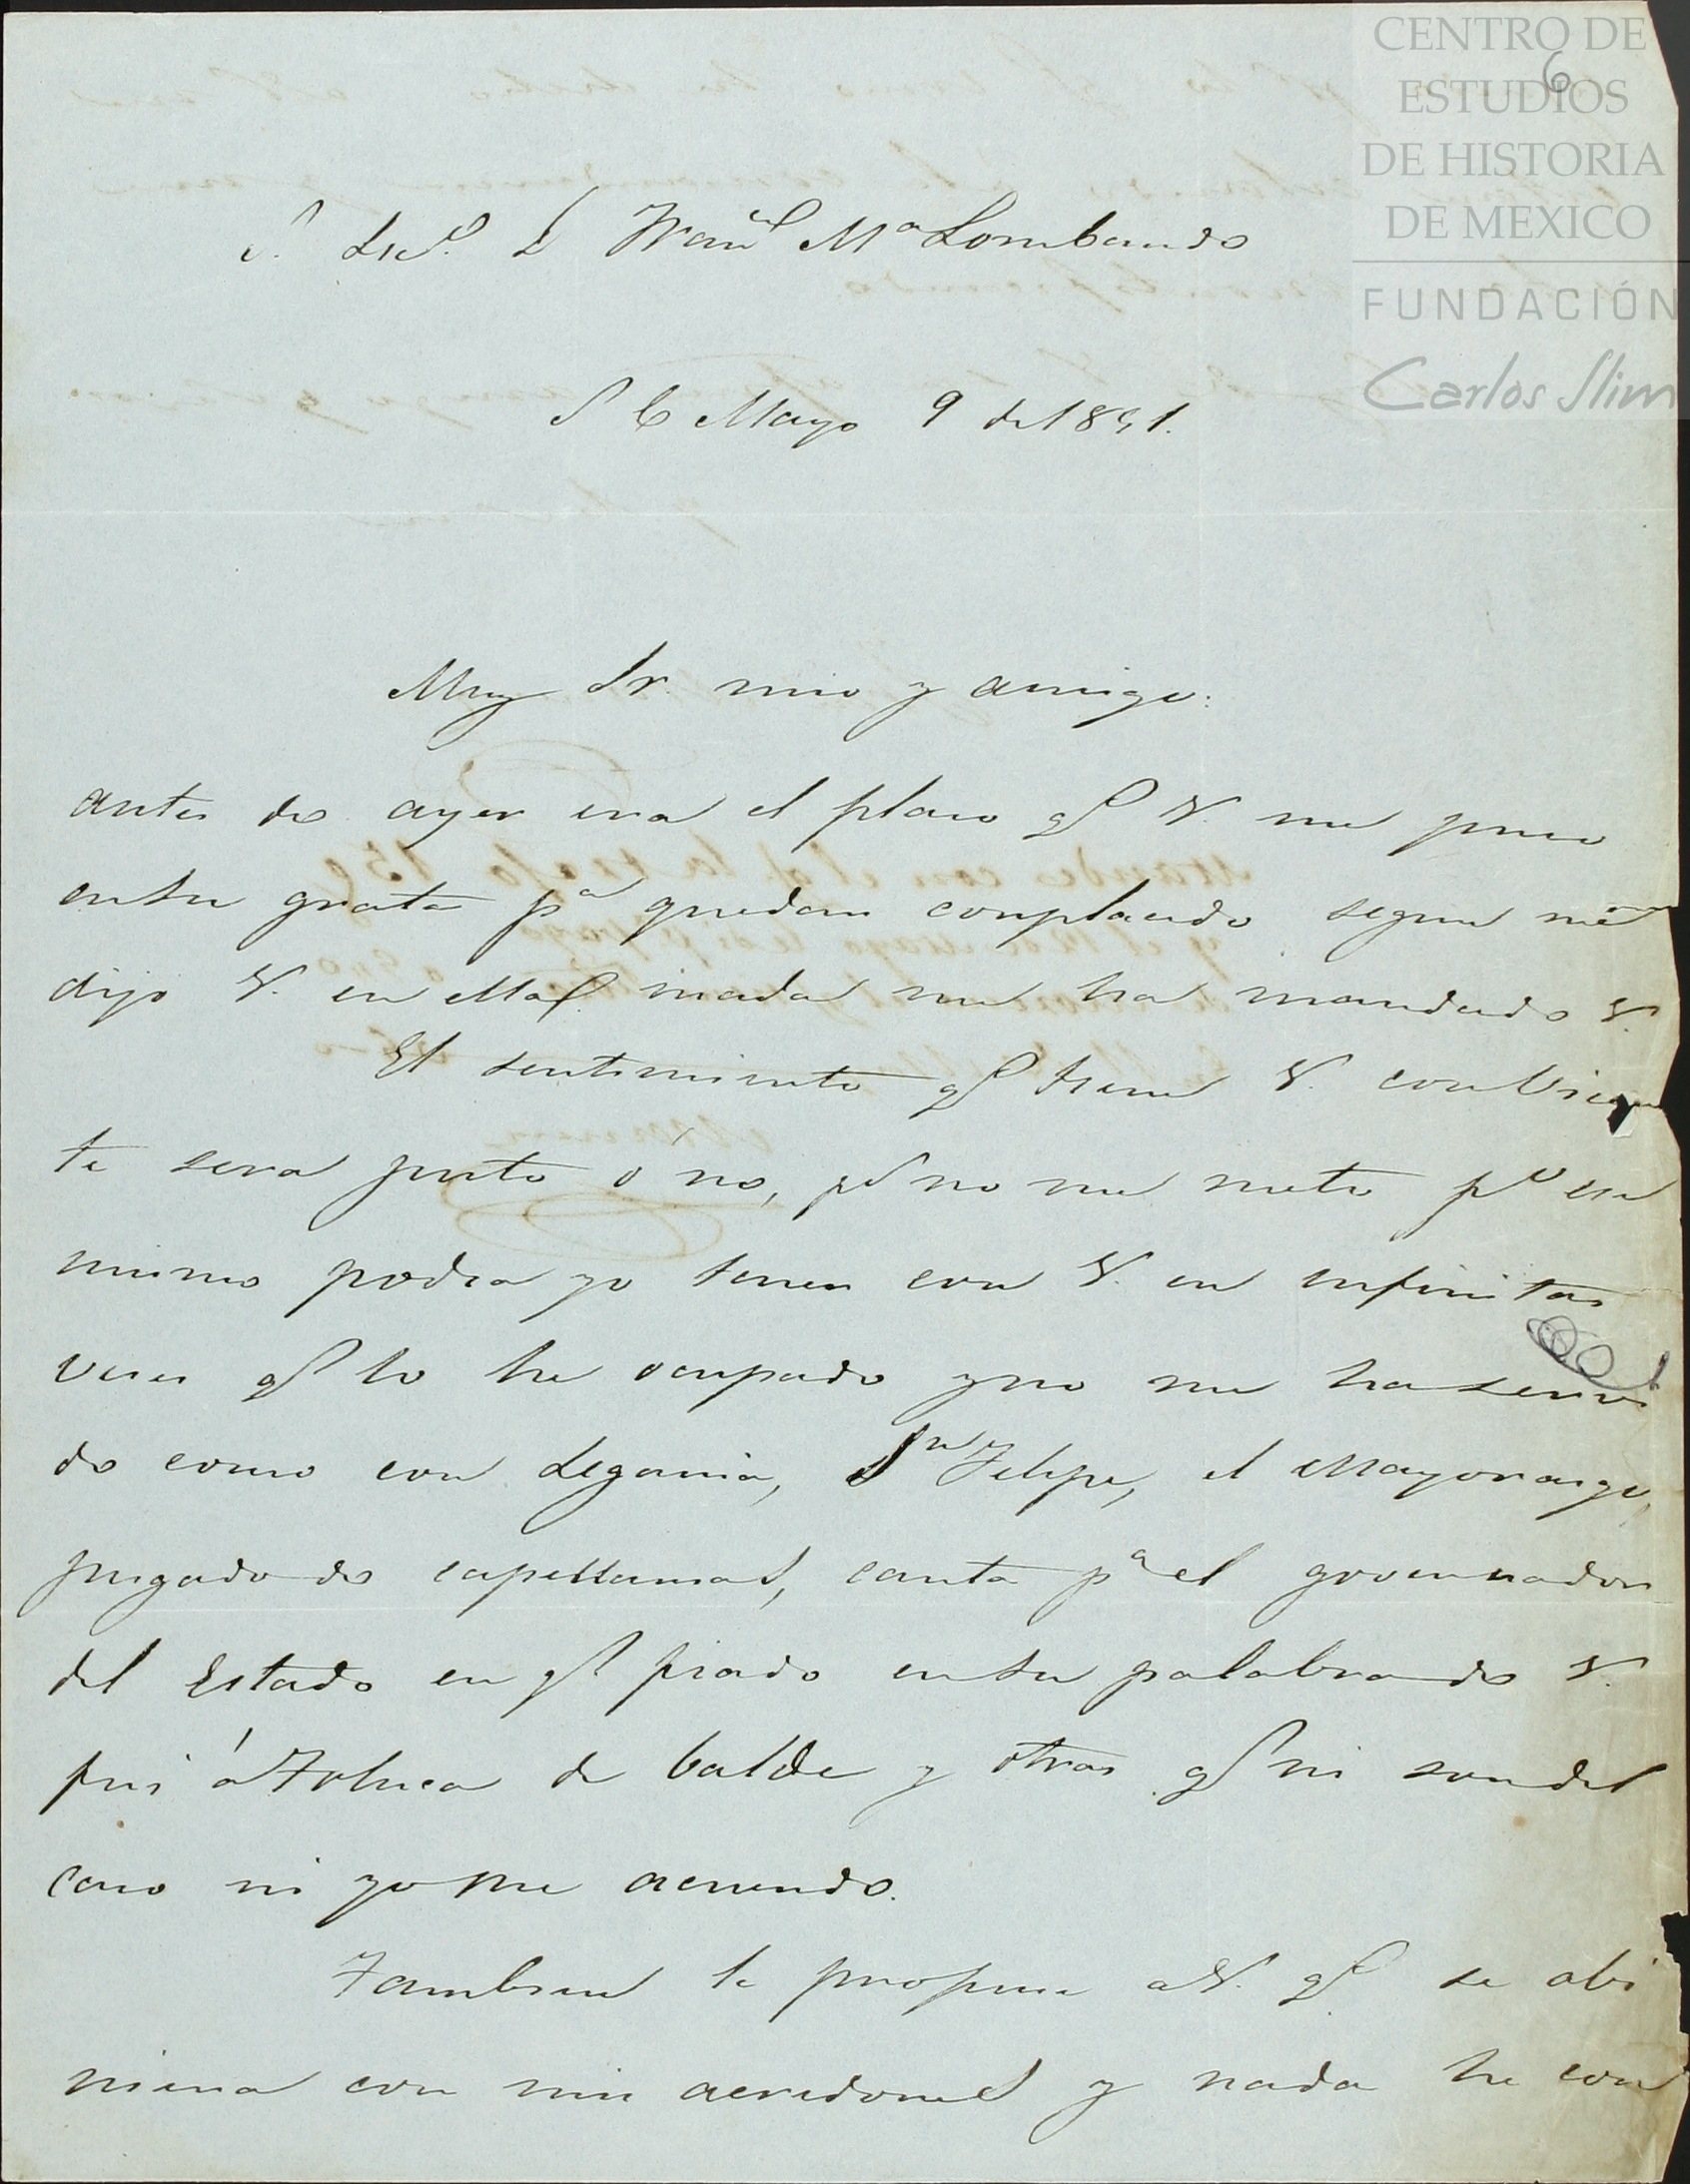 CENTRO DE
ESTUDIOS
DE HISTORIA
DE MEXICO
FUNDACIÓN
Carlos Slim
6
S. Lic.º D Man.l M.a Lombardo
S C Mayo 9 de 1851.
Muy Sr. mio y amigo:
antes de ayer era el plazo q.e V. me puso
en su grata p.a quedar complacido segun me
dijo V. en nada me ha mandado V.
El sentimiento q.e tiene V. con Vicen
te sera justo ó no, yo no me meto p.o ese
mismo podia yo tener con V. en infinitas
veces q.e lo he ocupado y no me ha servi
do como con S.n Felipe, el Mayorazgo,
juzgado de capellanias, carta p.a el governador
del Estado en q.e fiado en su palabra de V.
fui á Toluca de balde y otras q.e ni son del
caso ni yo me acuerdo.
Tambien le propuse a V. q.e se abi
niera con mis acredores y nada he con